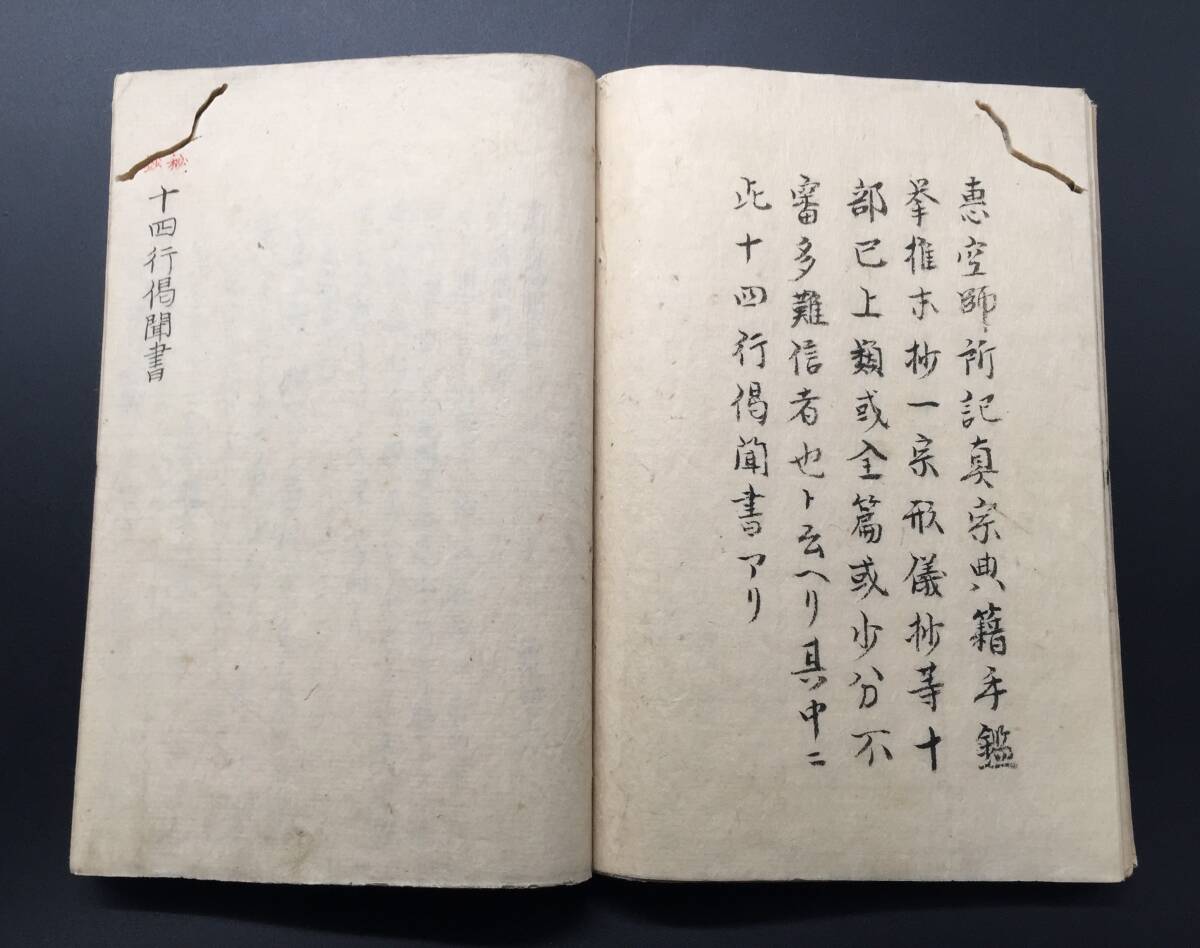 恵空師所記真宗典籍手鑑
挙推末抄一宗形儀抄等十
部已上類或全篇或少分不
審多難信者也ト云ヘリ具中ニ
此十四行偈聞書アリ
十四行偈聞書